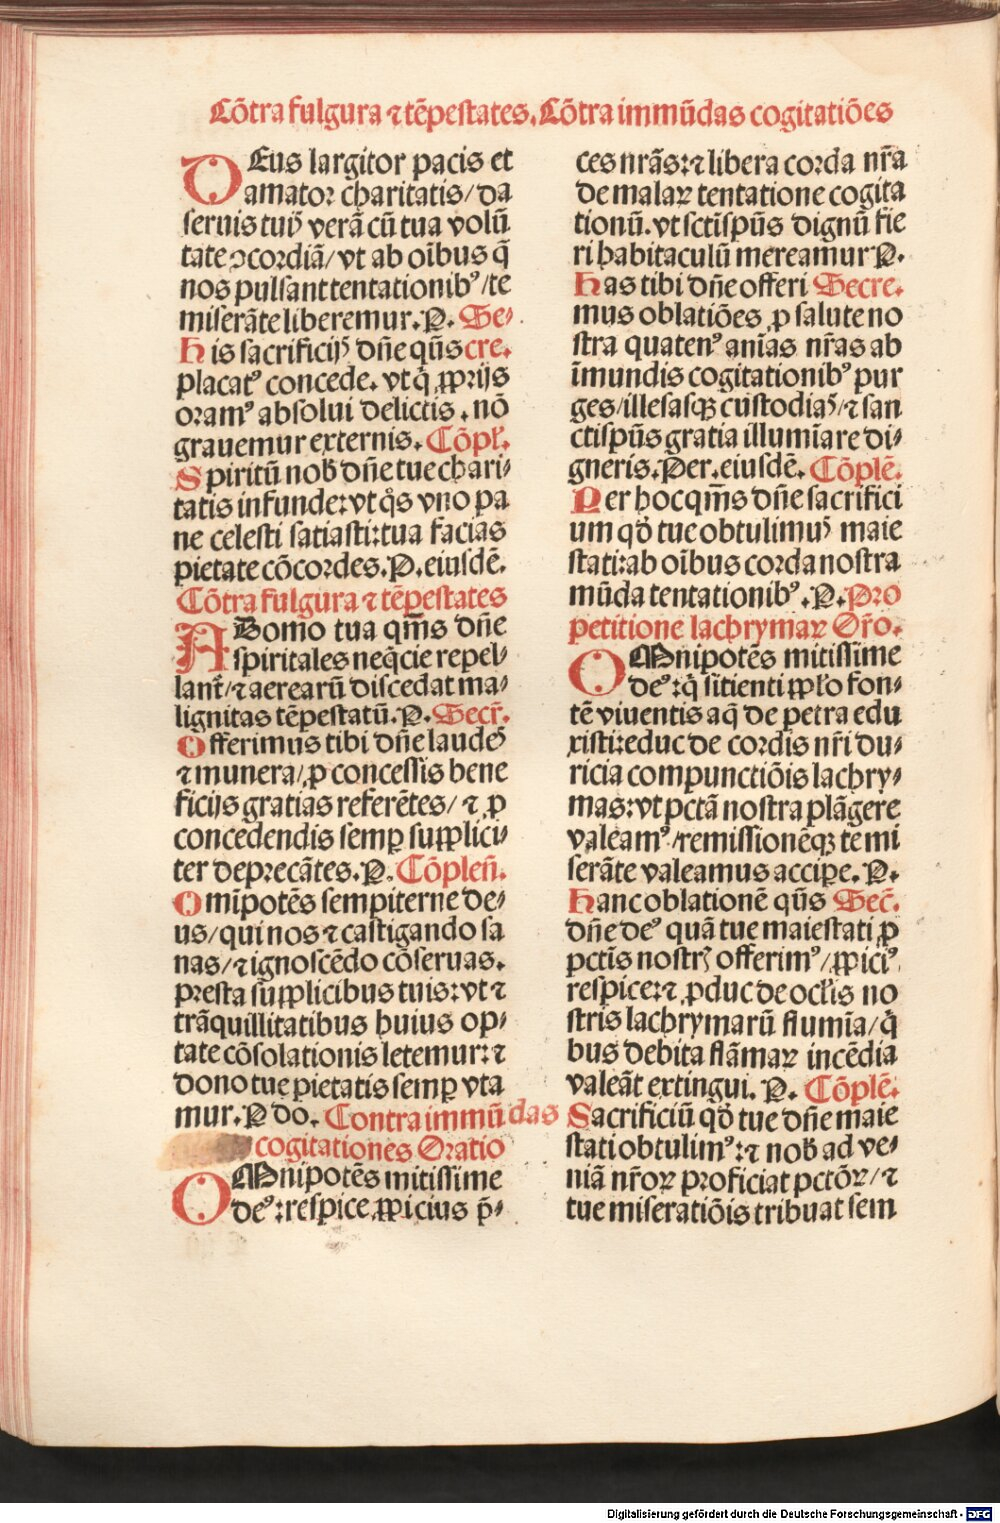 Cõtra fulgura ⁊ tẽpestates. Cõtra immũdas cogitatiões
DEus largitor pacis et
amator charitatis/ da
seruis tuis verã cũ tua volũ
tate ꝯcordiã/ vt ab oĩbus q̃
nos pulsant tentationibꝰ/ te
miserãte liberemur. P. Se⸗
His sacrificijs dñe q̃s cre.
placatꝰ concede. vt q̇ ꝓprijs
oramꝰ absolui delictis. nõ
grauemur externis. Cõpl.
Spiritũ nob dñe tue chari⸗
tatis infunde: vt q̇s vno pa
ne celesti satiasti: tua facias
pietate cõcordes. P. eiusdẽ.
Cõtra fulgura ⁊ tẽpestates
A Domo tua q̃ms dñe
spiritales neq̃cie repel⸗
lant/ ⁊ aerearũ discedat ma⸗
lignitas tẽpestatũ. P. Secr̃.
Offerimus tibi dñe laudes
⁊ munera/ ꝓ concessis bene
ficijs gratias referẽtes/ ⁊ ꝓ
concedendis semp̱ supplici⸗
ter deprecãtes. P. Cõpleñ.
Omĩpotẽs sempiterne de⸗
us/ qui nos ⁊ castigando sa
nas/ ⁊ ignoscẽdo cõseruas.
presta supplicibus tuis: vt ⁊
trãquillitatibus huius op⸗
tate cõsolationis letemur: ⁊
dono tue pietatis semp̱ vta
mur. P do. Contra immũdas
cogitationes Oratio
OMnipotẽs mitissime
deꝰ: respice ꝓpicius p̃⸗
ces nrãs: ⁊ libera corda nr̃a
de malaꝝ tentatione cogita
tionũ. vt sctĩspũs dignũ fie
ri habitaculũ mereamur P.
Has tibi dñe offeri Secre.
mus oblatiões ꝓ salute no
stra quatenꝰ anĩas nr̃as ab
ĩmundis cogitationibꝰ pur
ges/ illesasqꝫ custodias/ ⁊ san
ctispũs gratia illumĩare di⸗
gneris. Per. eiusdẽ. Cõplẽ.
Per hoc q̃ms dñe sacrifici
um qd̓ tue obtulimus maie
stati: ab oĩbus corda nostra
mũda tentationibꝰ. P. Pro
petitione lachrymaꝝ Or̃o.
OMnipotẽs mitissime
deꝰ: q̇ sitienti ꝓpl̓o fon⸗
tẽ viuentis aq̃ de petra edu
xisti: educ de cordis nr̃i du⸗
ricia compunctiõis lachry⸗
mas: vt pctã nostra plãgere
valeamꝰ/ remissionẽqꝫ te mi
serãte valeamus accip̱e. P.
Hanc oblationẽ q̃s Sec̃.
dñe deꝰ quã tue maiestati ꝓ
pctĩs nostris offerimꝰ/ ꝓpiciꝰ
respice: ⁊ ꝓduc de ocl̓is no
stris lachrymarũ flumĩa/ q̇
bus debita flãmaꝝ incẽdia
valeãt extingui. P. Cõplẽ.
Sacrificiũ qd̓ tue dñe maie
stati obtulimꝰ: ⁊ nob ad ve⸗
niã nr̃oꝝ proficiat pctõꝝ/ ⁊
tue miseratiõis tribuat sem
Digitalisierung gefördert durch die Deutsche Forschungsgemeinschaft - DFG